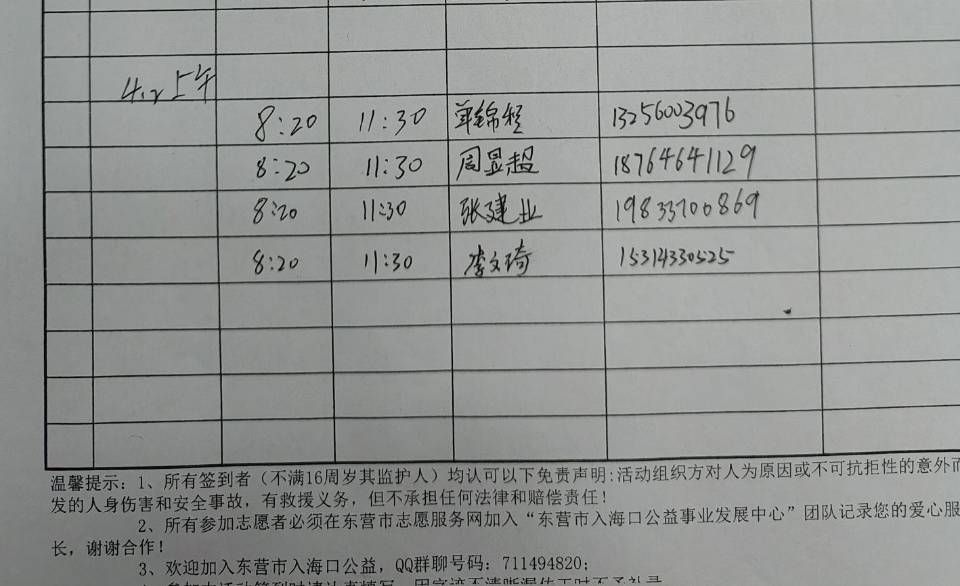 4.2上午
8:20 11:30 单锦程 13256003976
8:20 11:30 周显超 18764641129
8:20 11:30 张建业 19833700869
8:20 11:30 李文琦 15314330525
温馨提示：1、所有签到者（不满16周岁其监护人）均认可以下免责声明:活动组织方对人为原因或不可抗拒性的意外而
发的人身伤害和安全事故，有救援义务，但不承担任何法律和赔偿责任！
2、所有参加志愿者必须在东营市志愿服务网加入“东营市入海口公益事业发展中心”团队记录您的爱心服
长，谢谢合作！
3、欢迎加入东营市入海口公益，QQ群聊号码：711494820；